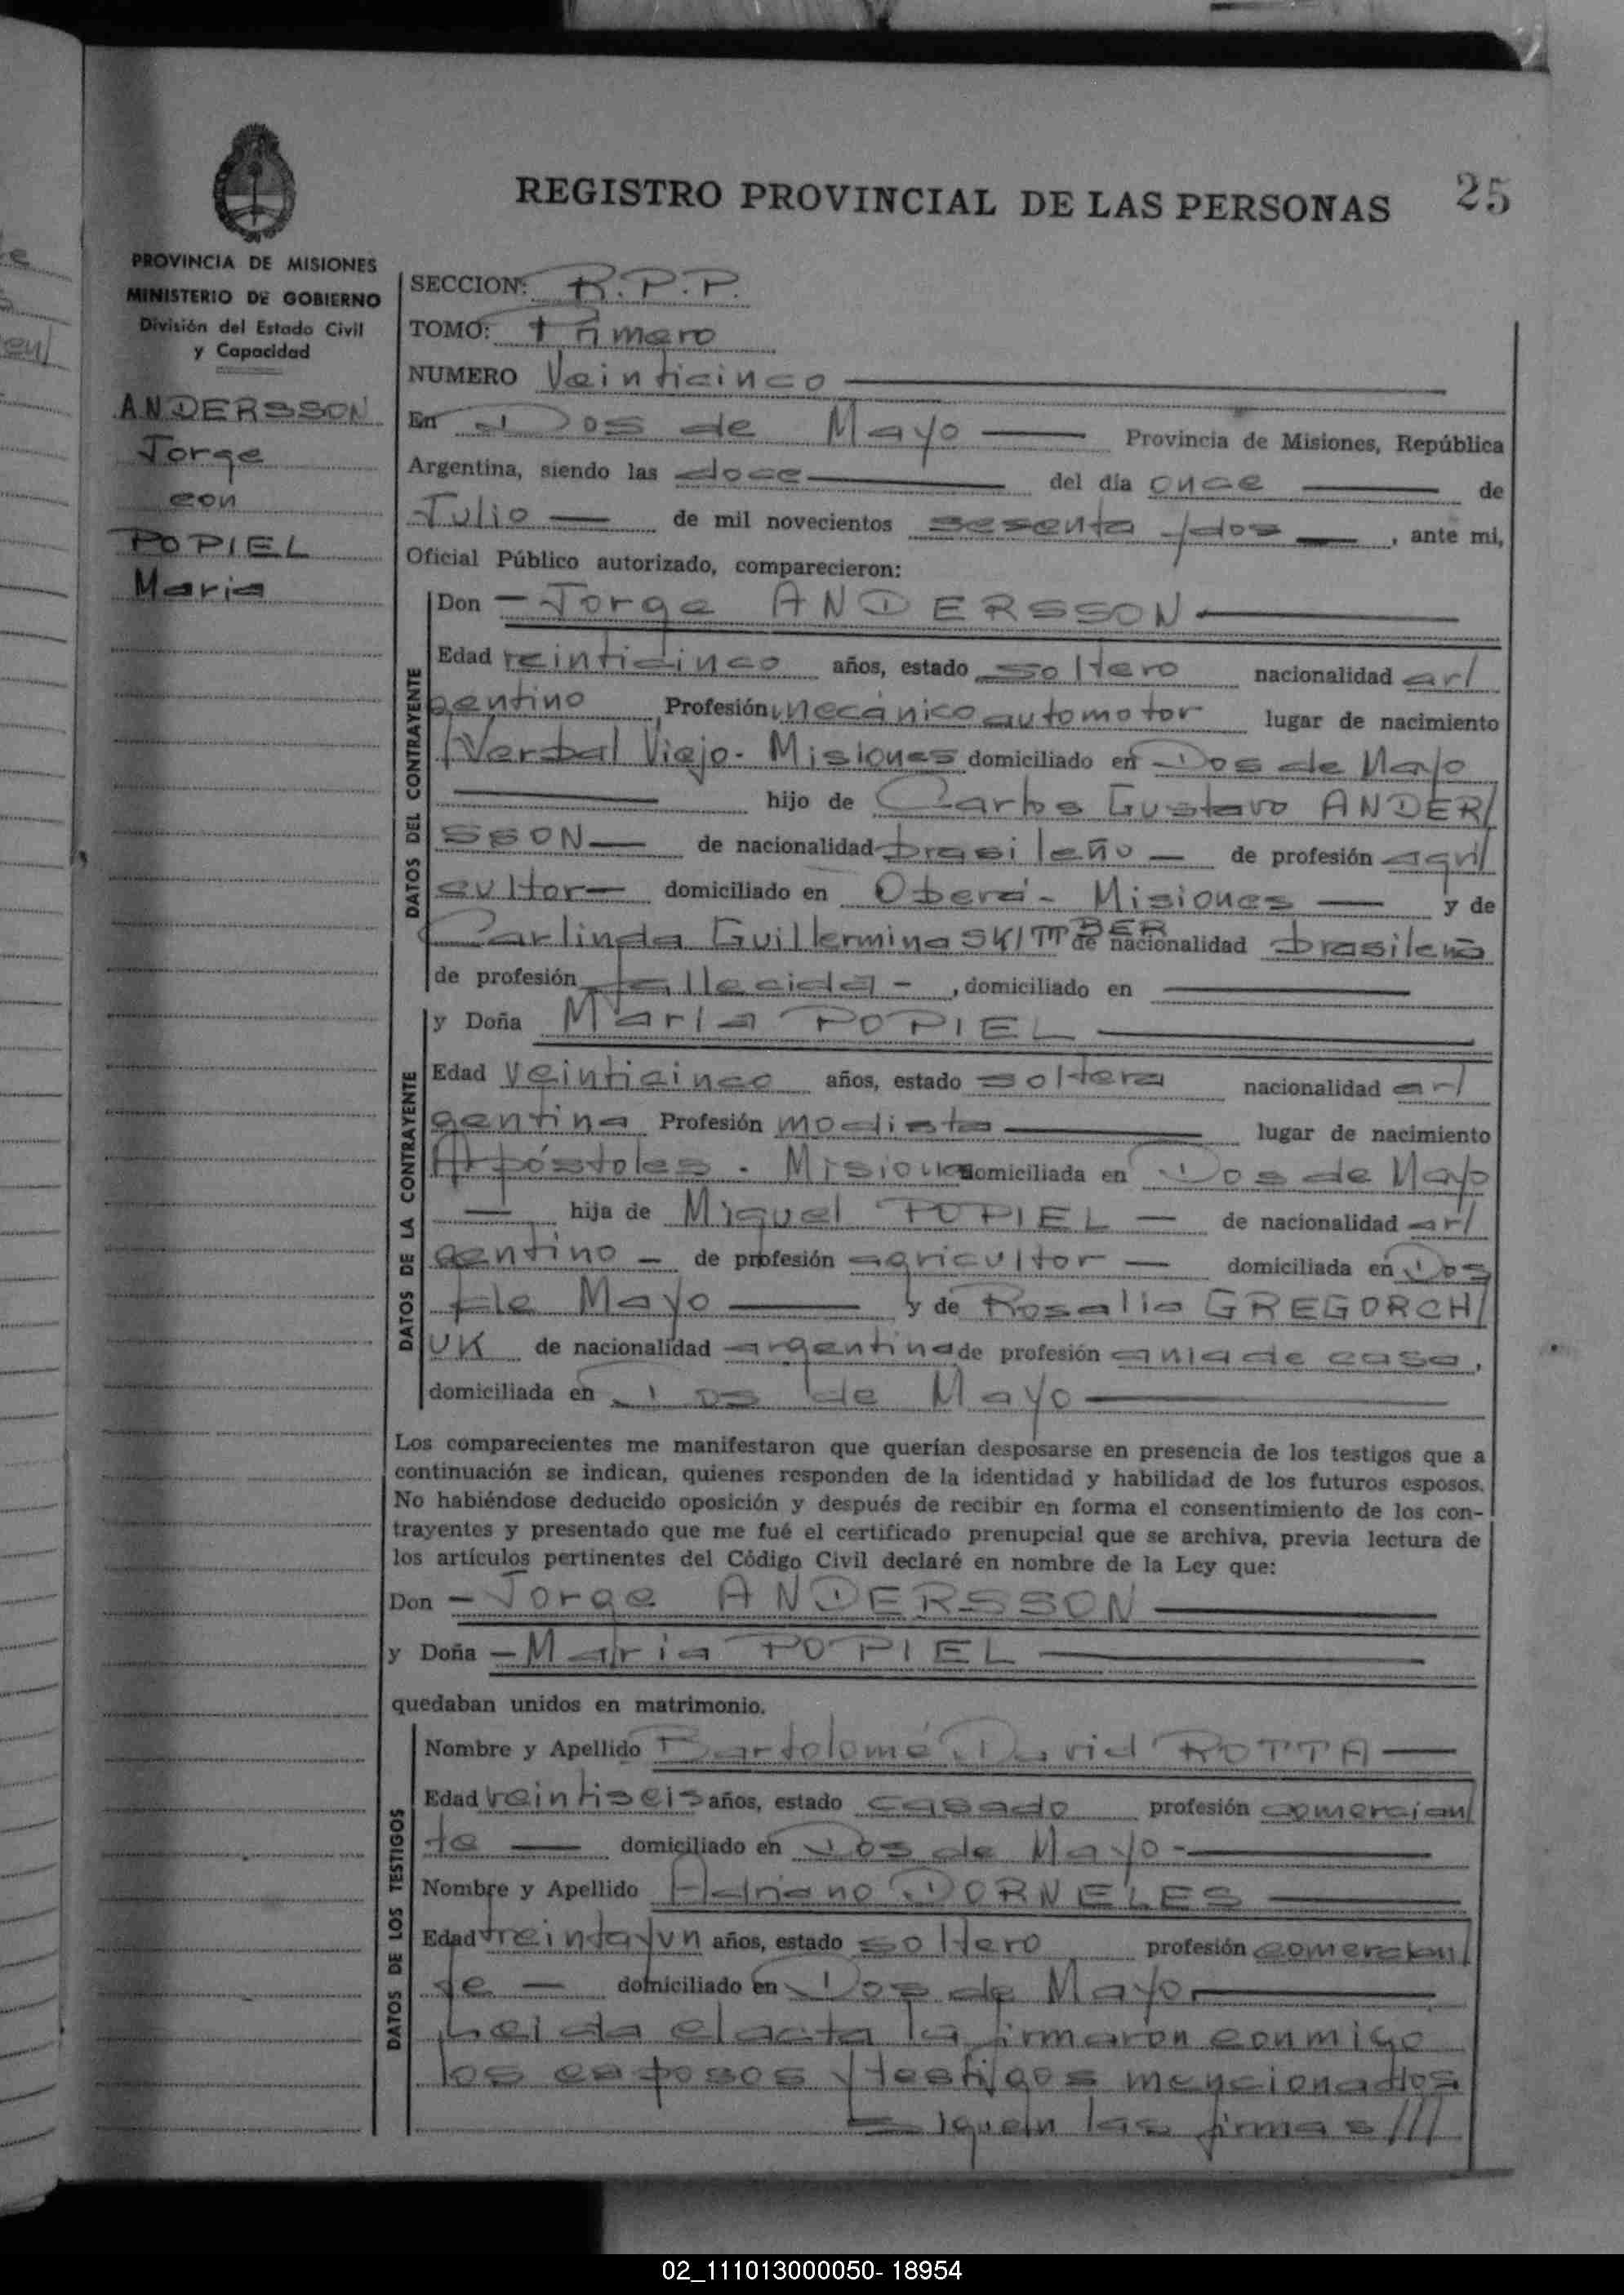 REGISTRO PROVINCIAL DE LAS PERSONAS 25
PROVINCIA DE MISIONES
MINISTERIO DE GOBIERNO
División del Estado Civil
y Capacidad
ANDERSSON
Jorge
con
POPIEL
Maria
SECCION: R.P.P.
TOMO: Primero
NUMERO Veinticinco
En Dos de Mayo Provincia de Misiones, República
Argentina, siendo las doce del día once de
Julio de mil novecientos sesenta y dos, ante mi,
Oficial Público autorizado, comparecieron:
DATOS DEL CONTRAYENTE
Don Jorge ANDERSSON
Edad veinticinco años, estado soltero nacionalidad ar/
gentino Profesión mecánico automotor lugar de nacimiento
Yerbal Viejo - Misiones domiciliado en Dos de Mayo
hijo de Carlos Gustavo ANDER/
SSON de nacionalidad brasileño de profesión agri/
cultor domiciliado en Oberá - Misiones y de
Carlinda Guillermina de nacionalidad brasileña
de profesión fallecida -, domiciliado en
DATOS DE LA CONTRAYENTE
y Doña Maria POPIEL
Edad veinticinco años, estado soltera nacionalidad ar/
gentina Profesión modista lugar de nacimiento
Apóstoles - Misiones domiciliada en Dos de Mayo
hija de Miguel POPIEL de nacionalidad ar/
gentino de profesión agricultor domiciliada en Dos
de Mayo y de Rosalia GREGORCH/
UK de nacionalidad argentina de profesión ama de casa,
domiciliada en Dos de Mayo
Los comparecientes me manifestaron que querían desposarse en presencia de los testigos que a
continuación se indican, quienes responden de la identidad y habilidad de los futuros esposos.
No habiéndose deducido oposición y después de recibir en forma el consentimiento de los con-
trayentes y presentado que me fué el certificado prenupcial que se archiva, previa lectura de
los artículos pertinentes del Código Civil declaré en nombre de la Ley que:
Don Jorge ANDERSSON
y Doña Maria POPIEL
quedaban unidos en matrimonio.
DATOS DE LOS TESTIGOS
Nombre y Apellido Bartolomé David ROTTA
Edad veintiseis años, estado casado profesión comercian/
te domiciliado en Dos de Mayo
Nombre y Apellido Adriano DORNELES
Edad treinta y un años, estado soltero profesión comercian/
te domiciliado en Dos de Mayo
Leida el acta la firmaron conmigo
los esposos y testigos mencionados
Siguen las firmas ///
02_111013000050- 18954